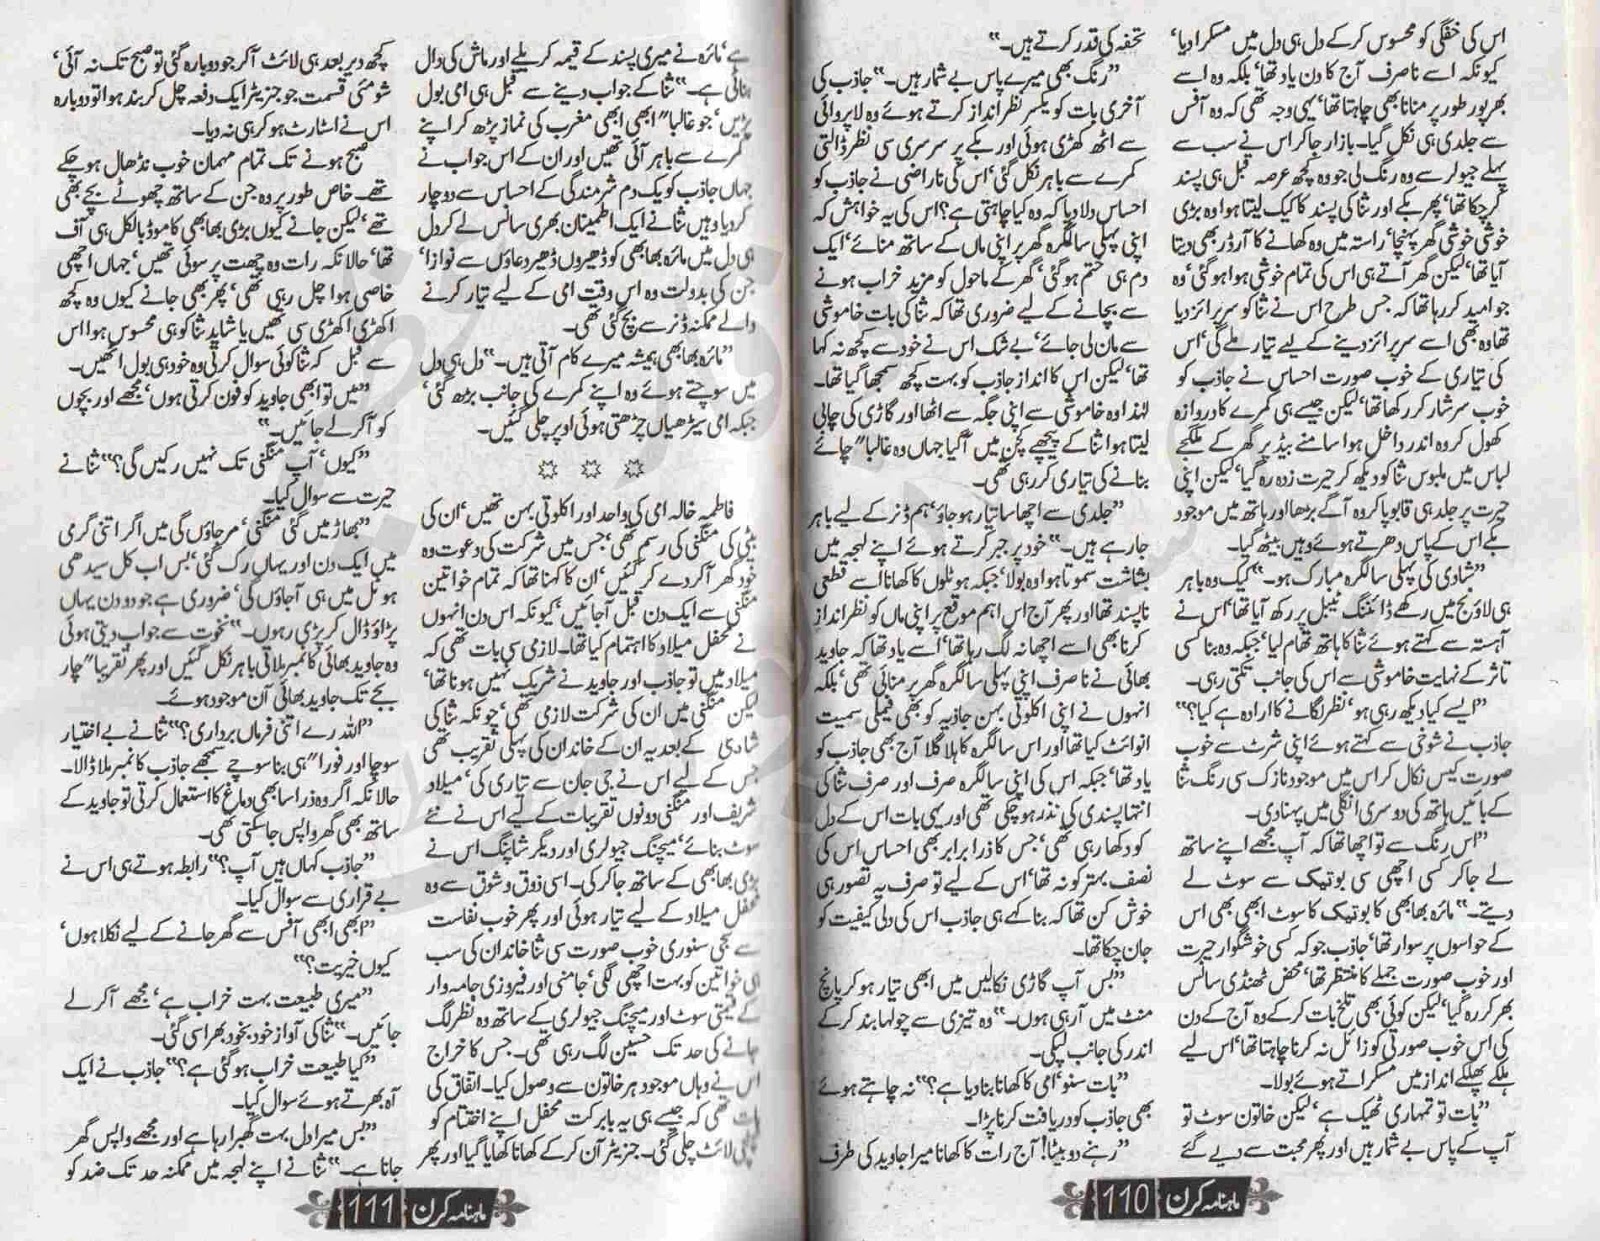 اس کی خفگی کو محسوس کر کے دل ہی دل میں مسکرا دیا‘
کیونکہ اسے ناصرف آج کا دن یاد تھا‘ بلکہ وہ اسے
بھرپور طور پر منانا بھی چاہتا تھا‘ یہی وجہ تھی کہ وہ آفس
سے جلدی ہی نکل گیا۔ بازار جا کر اس نے سب سے
پہلے جیولر سے وہ رنگ لی جو وہ کچھ عرصہ قبل ہی پسند
کر چکا تھا‘ پھر بکے اور ثنا کی پسند کا کیک لیتا ہوا وہ بڑی
خوشی خوشی گھر پہنچا‘ راستہ میں وہ کھانے کا آرڈر بھی دیتا
آیا تھا‘ لیکن گھر آتے ہی اس کی تمام خوشی ہوا ہو گئی‘ وہ
جو امید کر رہا تھا کہ جس طرح اس نے ثنا کو سرپرائز دیا
تھا وہ بھی اسے سرپرائز دینے کے لیے تیار ملے گی‘ اس
کی تیاری کے خوب صورت احساس نے جاذب کو
خوب سرشار کر رکھا تھا‘ لیکن جیسے ہی کمرے کا دروازہ
کھول کر وہ اندر داخل ہوا سامنے بیڈ پر گھر کے ملگجے
لباس میں ملبوس ثنا کو دیکھ کر حیرت زدہ رہ گیا‘ لیکن اپنی
حیرت پر جلد ہی قابو پا کر وہ آگے بڑھا اور ہاتھ میں موجود
بکے اس کے پاس دھرتے ہوئے وہیں بیٹھ گیا۔
”شادی کی پہلی سالگرہ مبارک ہو۔“ کیک وہ باہر
ہی لاؤنج میں رکھے ڈائننگ ٹیبل پر رکھ آیا تھا‘ اس نے
آہستہ سے کہتے ہوئے ثنا کا ہاتھ تھام لیا‘ جبکہ وہ بنا کسی
تاثر کے نہایت خاموشی سے اس کی جانب تکتی رہی۔
”ایسے کیا دیکھ رہی ہو‘ نظر لگانے کا ارادہ ہے کیا؟“
جاذب نے شوخی سے کہتے ہوئے اپنی شرٹ سے خوب
صورت کیس نکال کر اس میں موجود نازک سی رنگ ثنا
کے بائیں ہاتھ کی دوسری انگلی میں پہنا دی۔
”اس رنگ سے تو اچھا تھا کہ آپ مجھے اپنے ساتھ
لے جا کر کسی اچھی سی بوتیک سے سوٹ لے
دیتے۔“ مائرہ بھابھی کا بوتیک کا سوٹ ابھی بھی اس
کے حواسوں پر سوار تھا‘ جاذب جو کہ کسی خوشگوار حیرت
اور خوب صورت جملے کا منتظر تھا‘ محض ٹھنڈی سانس
بھر کر رہ گیا‘ لیکن کوئی بھی تلخ بات کر کے وہ آج کے دن
کی اس خوب صورتی کو زائل نہ کرنا چاہتا تھا‘ اس لیے
ہلکے پھلکے انداز میں مسکراتے ہوئے بولا۔
”بات تو تمہاری ٹھیک ہے‘ لیکن خاتون سوٹ تو
آپ کے پاس بے شمار ہیں اور پھر محبت سے دیے گئے
تحفہ کی قدر کرتے ہیں۔“
”رنگ بھی میرے پاس بے شمار ہیں۔“ جاذب کی
آخری بات کو یکسر نظر انداز کرتے ہوئے وہ لاپروائی
سے اٹھ کھڑی ہوئی اور بکے پر سرسری سی نظر ڈالتی
کمرے سے باہر نکل گئی‘ اس کی ناراضی نے جاذب کو
احساس دلا دیا کہ وہ کیا چاہتی ہے؟ اس کی یہ خواہش کہ
اپنی پہلی سالگرہ گھر پر اپنی ماں کے ساتھ منائے‘ ایک
دم ہی ختم ہو گئی‘ گھر کے ماحول کو مزید خراب ہونے
سے بچانے کے لیے ضروری تھا کہ ثنا کی بات خاموشی
سے مان لی جائے‘ بے شک اس نے خود سے کچھ نہ کہا
تھا‘ لیکن اس کا انداز جاذب کو بہت کچھ سمجھا گیا تھا۔
لہٰذا وہ خاموشی سے اپنی جگہ سے اٹھا اور گاڑی کی چابی
لیتا ہوا ثنا کے پیچھے کچن میں آ گیا جہاں وہ غالبا” چائے
بنانے کی تیاری کر رہی تھی۔
”جلدی سے اچھا سا تیار ہو جاؤ‘ ہم ڈنر کے لیے باہر
جا رہے ہیں۔“ خود پر جبر کرتے ہوئے اپنے لہجہ میں
بشاشت سموتا ہوا وہ بولا‘ جبکہ ہوٹلوں کا کھانا اسے قطعی
ناپسند تھا اور پھر آج اس اہم موقع پر اپنی ماں کو نظر انداز
کرنا بھی اسے اچھا نہ لگ رہا تھا‘ اسے یاد تھا کہ جاوید
بھائی نے ناصرف اپنی پہلی سالگرہ گھر پر منائی تھی‘ بلکہ
انہوں نے اپنی اکلوتی بہن جاذبہ کو بھی فیملی سمیت
انوائٹ کیا تھا اور اس سالگرہ کا ہلا گلا آج بھی جاذب کو
یاد تھا‘ جبکہ اس کی اپنی سالگرہ صرف اور صرف ثنا کی
انتہا پسندی کی نذر ہو چکی تھی اور یہی بات اس کے دل
کو دکھا رہی تھی‘ جس کا ذرا برابر بھی احساس اس کی
نصف بہتر کو نہ تھا‘ اس کے لیے تو صرف یہ تصور ہی
خوش کن تھا کہ بنا کہے ہی جاذب اس کی دلی کیفیت کو
جان چکا تھا۔
”بس آپ گاڑی نکالیں میں ابھی تیار ہو کر پانچ
منٹ میں آ رہی ہوں۔“ وہ تیزی سے چولہا بند کر کے
اندر کی جانب لپکی۔
”بات سنو‘ امی کا کھانا بنا دیا ہے؟“ نہ چاہتے ہوئے
بھی جاذب کو دریافت کرنا پڑا۔
”رہنے دو بیٹا! آج رات کا کھانا میرا جاوید کی طرف
ماہنامہ کرن 110
ہے‘ مائرہ نے میری پسند کے قیمہ کریلے اور ماش کی دال
بنائی ہے۔“ ثنا کے جواب دینے سے قبل ہی امی بول
پڑیں‘ جو غالبا” ابھی ابھی مغرب کی نماز پڑھ کر اپنے
کمرے سے باہر آئی تھیں اور ان کے اس جواب نے
جہاں جاذب کو یک دم شرمندگی کے احساس سے دوچار
کر دیا وہیں ثنا نے ایک اطمینان بھری سانس لے کر دل
ہی دل میں مائرہ بھابھی کو ڈھیروں ڈھیر دعاؤں سے نوازا‘
جن کی بدولت وہ اس وقت امی کے لیے تیار کرنے
والے ممکنہ ڈنر سے بچ گئی تھی۔
”مائرہ بھابھی ہمیشہ میرے کام آتی ہیں۔“ دل ہی دل
میں سوچتے ہوئے وہ اپنے کمرے کی جانب بڑھ گئی‘
جبکہ امی سیڑھیاں چڑھتی ہوئی اوپر چلی گئیں۔
فاطمہ خالہ امی کی واحد اور اکلوتی بہن تھیں‘ ان کی
بیٹی کی منگنی کی رسم تھی‘ جس میں شرکت کی دعوت وہ
خود گھر آ کر دے کر گئیں‘ ان کا کہنا تھا کہ تمام خواتین
منگنی سے ایک دن قبل آ جائیں‘ کیونکہ اس دن انہوں
نے محفل میلاد کا اہتمام کیا تھا۔ لازمی سی بات تھی کہ
میلاد میں تو جاذب اور جاوید نے شریک نہیں ہونا تھا‘
لیکن منگنی میں ان کی شرکت لازمی تھی‘ چونکہ ثنا کی
شادی کے بعد یہ ان کے خاندان کی پہلی تقریب تھی
جس کے لیے اس نے جی جان سے تیاری کی‘ میلاد
شریف اور منگنی دونوں تقریبات کے لیے اس نے نئے
سوٹ بنائے‘ میچنگ جیولری اور دیگر شاپنگ اس نے
بڑی بھابھی کے ساتھ جا کر کی۔ اسی ذوق و شوق سے وہ
محفل میلاد کے لیے تیار ہوئی اور پھر خوب نفاست
سے سجی سنوری خوب صورت سی ثنا خاندان کی سب
ہی خواتین کو بہت اچھی لگی‘ جامنی اور فیروزی جامہ وار
کے قیمتی سوٹ اور میچنگ جیولری کے ساتھ وہ نظر لگ
جانے کی حد تک حسین لگ رہی تھی۔ جس کا خراج
اس نے وہاں موجود ہر خاتون سے وصول کیا۔ اتفاق کی
بات تھی کہ جیسے ہی یہ بابرکت محفل اپنے اختتام کو
پہنچی لائٹ چلی گئی۔ جنریٹر آن کر کے کھانا کھایا گیا اور پھر
کچھ دیر بعد ہی لائٹ آ کر جو دوبارہ گئی تو صبح تک نہ آئی‘
شومئی قسمت جو جنریٹر ایک دفعہ چل کر بند ہوا تو دوبارہ
اس نے اسٹارٹ ہو کر ہی نہ دیا۔
صبح ہونے تک تمام مہمان خوب نڈھال ہو چکے
تھے۔ خاص طور پر وہ جن کے ساتھ چھوٹے بچے بھی
تھے‘ لیکن جانے کیوں بڑی بھابھی کا موڈ بالکل ہی آف
تھا‘ حالانکہ رات وہ چھت پر سوئی تھیں‘ جہاں اچھی
خاصی ہوا چل رہی تھی‘ پھر بھی جانے کیوں وہ کچھ
اکھڑی اکھڑی سی تھیں یا شاید ثنا کو ہی محسوس ہوا اس
سے قبل کہ ثنا کوئی سوال کرتی وہ خود ہی بول اٹھیں۔
”میں تو ابھی جاوید کو فون کرتی ہوں‘ مجھے اور بچوں
کو آ کر لے جائیں۔“
”کیوں‘ آپ منگنی تک نہیں رکیں گی؟“ ثنا نے
حیرت سے سوال کیا۔
”بھاڑ میں گئی منگنی‘ مر جاؤں گی میں اگر اتنی گرمی
میں ایک دن اور یہاں رک گئی‘ بس اب کل سیدھی
ہوٹل میں ہی آ جاؤں گی‘ ضروری ہے جو دو دن یہاں
پڑاؤ ڈال کر پڑی رہوں۔“ نخوت سے جواب دیتی ہوئی
وہ جاوید بھائی کا نمبر ملاتی باہر نکل گئیں اور پھر تقریبا” چار
بجے تک جاوید بھائی آن موجود ہوئے۔
”اللہ رے اتنی فرماں برداری؟“ ثنا نے بے اختیار
سوچا اور فورا” ہی بنا سوچے سمجھے جاذب کا نمبر ملا ڈالا۔
حالانکہ اگر وہ ذرا سا بھی دماغ کا استعمال کرتی تو جاوید کے
ساتھ بھی گھر واپس جا سکتی تھی۔
”جاذب کہاں ہیں آپ؟“ رابطہ ہوتے ہی اس نے
بے قراری سے سوال کیا۔
”ابھی ابھی آفس سے گھر جانے کے لیے نکلا ہوں‘
کیوں خیریت؟“
”میری طبیعت بہت خراب ہے‘ مجھے آ کر لے
جائیں۔“ ثنا کی آواز خود بخود بھرا سی گئی۔
”کیا طبیعت خراب ہو گئی ہے؟“ جاذب نے ایک
آہ بھرتے ہوئے سوال کیا۔
”بس میرا دل بہت گھبرا رہا ہے اور مجھے واپس گھر
جانا ہے۔“ ثنا نے اپنے لہجہ میں ممکنہ حد تک ضد کو
ماہنامہ کرن 111